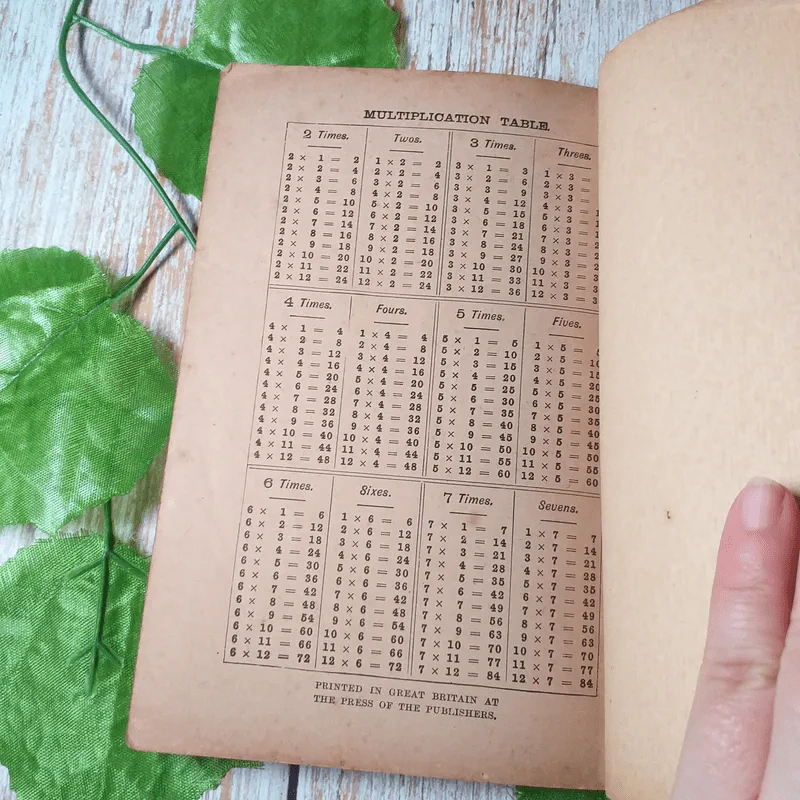 MULTIPLICATION TABLE.
2 Times.
2 × 1 = 2
2 × 2 = 4
2 × 3 = 6
2 × 4 = 8
2 × 5 = 10
2 × 6 = 12
2 × 7 = 14
2 × 8 = 16
2 × 9 = 18
2 × 10 = 20
2 × 11 = 22
2 × 12 = 24
Twos.
1 × 2 = 2
2 × 2 = 4
3 × 2 = 6
4 × 2 = 8
5 × 2 = 10
6 × 2 = 12
7 × 2 = 14
8 × 2 = 16
9 × 2 = 18
10 × 2 = 20
11 × 2 = 22
12 × 2 = 24
3 Times.
3 × 1 = 3
3 × 2 = 6
3 × 3 = 9
3 × 4 = 12
3 × 5 = 15
3 × 6 = 18
3 × 7 = 21
3 × 8 = 24
3 × 9 = 27
3 × 10 = 30
3 × 11 = 33
3 × 12 = 36
Threes.
1 × 3 =
2 × 3 =
3 × 3 =
4 × 3 =
5 × 3 =
6 × 3 =
7 × 3 =
8 × 3 =
9 × 3 =
10 × 3 =
11 × 3 =
12 × 3 =
4 Times.
4 × 1 = 4
4 × 2 = 8
4 × 3 = 12
4 × 4 = 16
4 × 5 = 20
4 × 6 = 24
4 × 7 = 28
4 × 8 = 32
4 × 9 = 36
4 × 10 = 40
4 × 11 = 44
4 × 12 = 48
Fours.
1 × 4 = 4
2 × 4 = 8
3 × 4 = 12
4 × 4 = 16
5 × 4 = 20
6 × 4 = 24
7 × 4 = 28
8 × 4 = 32
9 × 4 = 36
10 × 4 = 40
11 × 4 = 44
12 × 4 = 48
5 Times.
5 × 1 = 5
5 × 2 = 10
5 × 3 = 15
5 × 4 = 20
5 × 5 = 25
5 × 6 = 30
5 × 7 = 35
5 × 8 = 40
5 × 9 = 45
5 × 10 = 50
5 × 11 = 55
5 × 12 = 60
Fives.
1 × 5 = 5
2 × 5 = 10
3 × 5 = 15
4 × 5 = 20
5 × 5 = 25
6 × 5 = 30
7 × 5 = 35
8 × 5 = 40
9 × 5 = 45
10 × 5 = 50
11 × 5 = 55
12 × 5 = 60
6 Times.
6 × 1 = 6
6 × 2 = 12
6 × 3 = 18
6 × 4 = 24
6 × 5 = 30
6 × 6 = 36
6 × 7 = 42
6 × 8 = 48
6 × 9 = 54
6 × 10 = 60
6 × 11 = 66
6 × 12 = 72
Sixes.
1 × 6 = 6
2 × 6 = 12
3 × 6 = 18
4 × 6 = 24
5 × 6 = 30
6 × 6 = 36
7 × 6 = 42
8 × 6 = 48
9 × 6 = 54
10 × 6 = 60
11 × 6 = 66
12 × 6 = 72
7 Times.
7 × 1 = 7
7 × 2 = 14
7 × 3 = 21
7 × 4 = 28
7 × 5 = 35
7 × 6 = 42
7 × 7 = 49
7 × 8 = 56
7 × 9 = 63
7 × 10 = 70
7 × 11 = 77
7 × 12 = 84
Sevens.
1 × 7 = 7
2 × 7 = 14
3 × 7 = 21
4 × 7 = 28
5 × 7 = 35
6 × 7 = 42
7 × 7 = 49
8 × 7 = 56
9 × 7 = 63
10 × 7 = 70
11 × 7 = 77
12 × 7 = 84
PRINTED IN GREAT BRITAIN AT
THE PRESS OF THE PUBLISHERS.